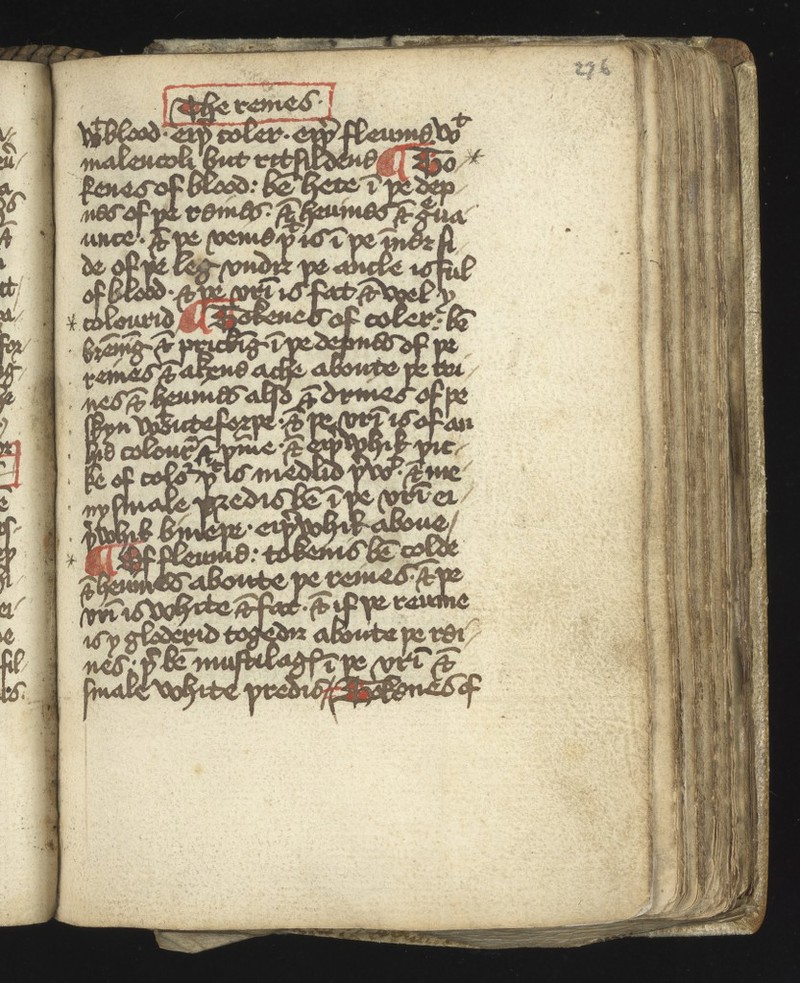 276
The reines·
wᵗ blood· eiþ̉ coler· eiþ̉ fleume wᵗ
malencoli but ritsildene ¶ To
kenes of blood: bē hete ī þe dep
nes of þe reines· & heuines & g̉ua
unce· & þe veine þᵗ is ī þe īner si
de of þe leg vndir þe ancle is ful
of blood· & þe vrī is fat & wel y
colourid ¶ Tokenes of coler: bē
brēnīg & prickīg ī þe depnes of þe
reines & akens ache aboute þe rei
nes & heuines also & drines of þe
skyn wᵗouteforþe· & þe vrī is of an
hiȝ colour & þīne· & eiþ̉whik þic
ke of colo² þᵗ is medlid þ̉wᵗ· & me
ny smale þredis bē ī þe vrī ei
þ̉whik bineþe· eiþ̉whik aboue
¶ Of fleume: tokenis bē colde
& heuines aboute þe reines· & þe
vrī is white & fat· & if þe reume
is y gloderid togedir aboute þe rei
nes· þ̉ bē mustilag ī þe vrī &
smale white þredis Tokenes of